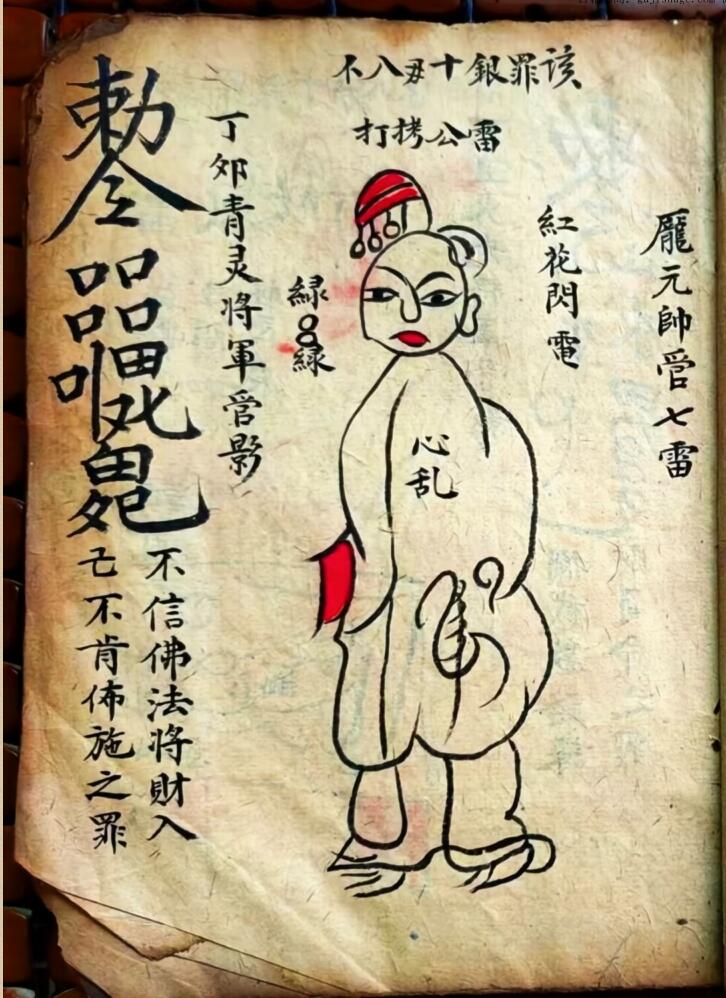 該罪銀十毋八不
雷公拷打
龐元帥管七雷
紅花閃電
心乱
緑
緑
丁卯青灵將軍管影
勅令
不信佛法將財入
己不肯佈施之罪